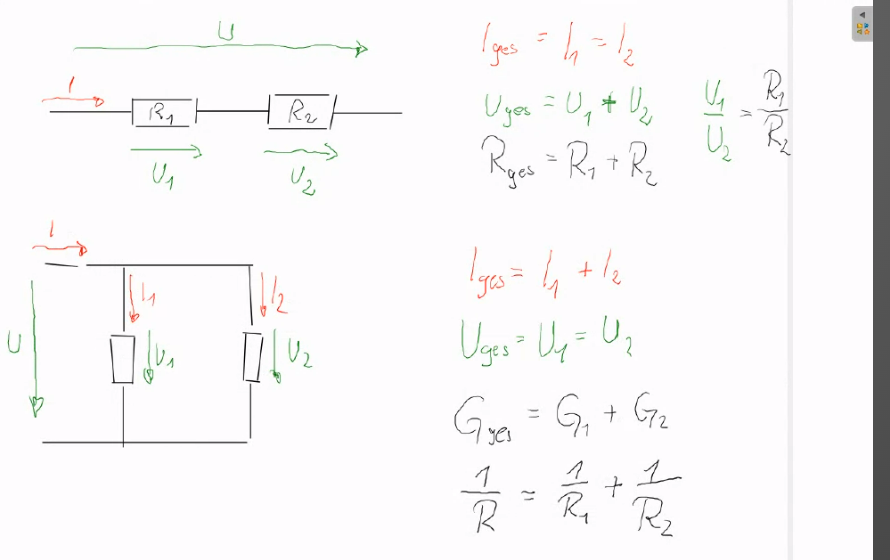 U
I
R₁ R₂
U₁ U₂
I_ges = I₁ = I₂
U_ges = U₁ + U₂
R_ges = R₁ + R₂
U₁/U₂ = R₁/R₂
I
I₁ I₂
U U₁ U₂
I_ges = I₁ + I₂
U_ges = U₁ = U₂
G_ges = G₁ + G₂
1/R = 1/R₁ + 1/R₂